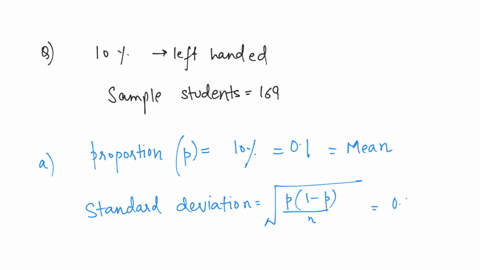 Q) 10 % → left handed
Sample students = 169
a) proportion (p) = 10% = 0.1 = Mean
Standard deviation = √p(1-p)/n = 0.